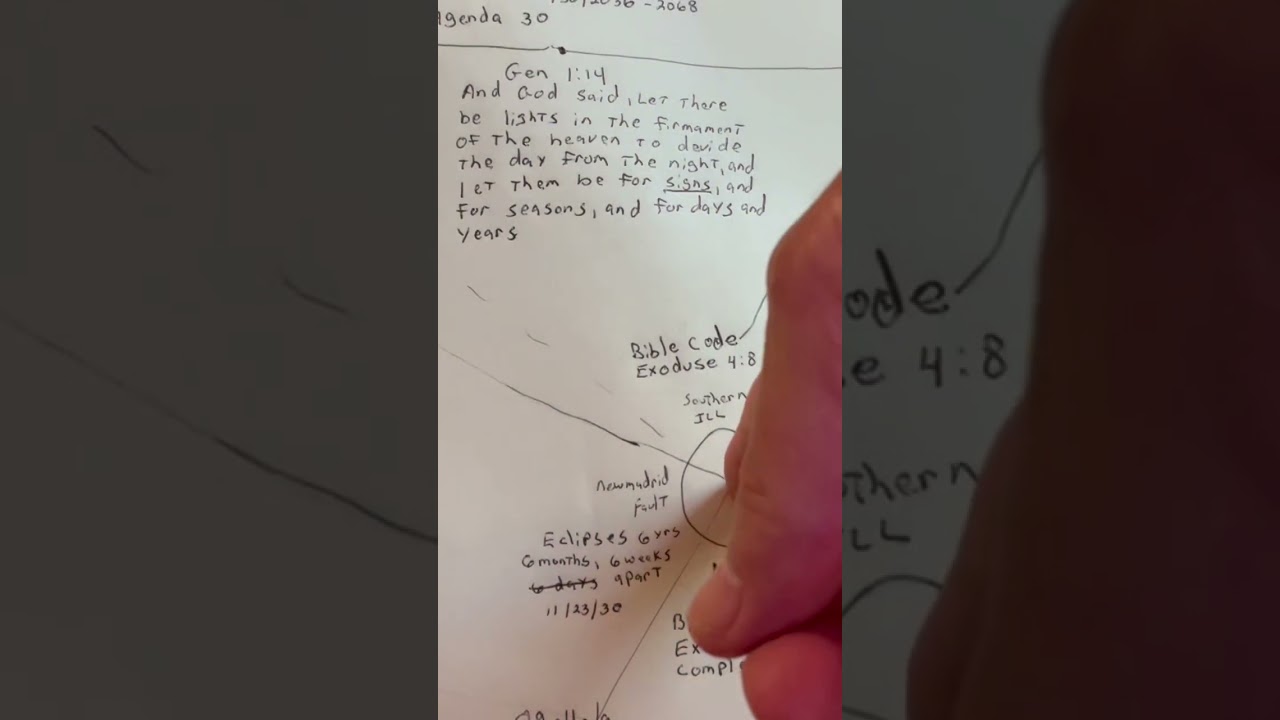 2036 - 2068
genda 30
Gen 1:14
And God said, Let There
be lights in The firmament
of The heaven To devide
The day from The night, and
let Them be for signs, and
for seasons, and for days and
years
Bible Code
Exoduse 4:8
Southern
ILL
newmadrid
fault
Eclipses 6 yrs
6 months, 6 weeks
6 days apart
11/23/30
B
Ex
Compl
ode
e 4:8
Thern
LL